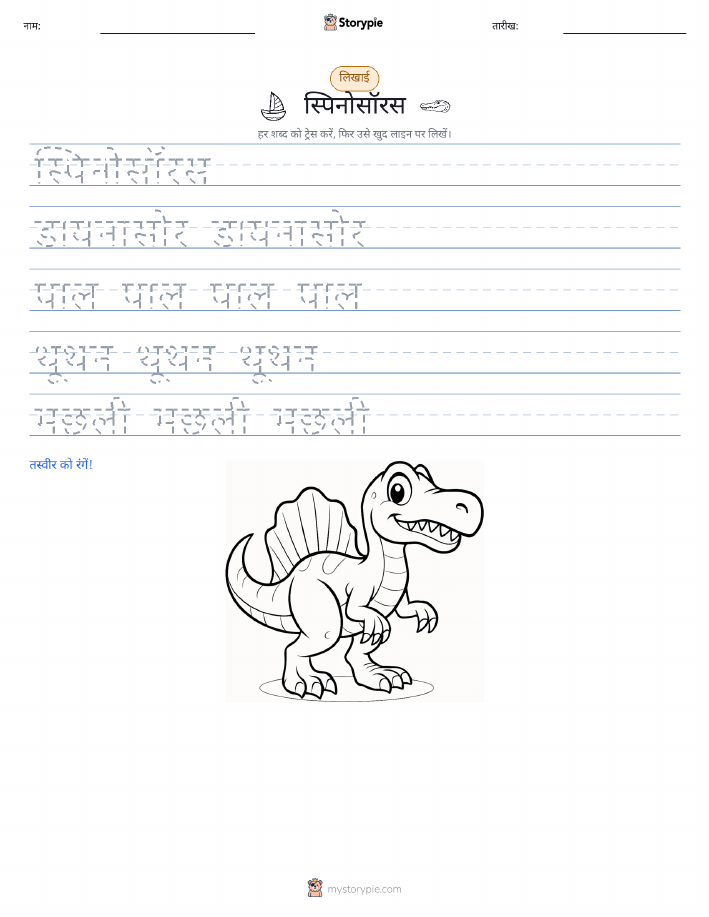 नाम:
Storypie
तारीख:
लिखाई
स्पिनोसॉरस
हर शब्द को ट्रेस करें, फिर उसे खुद लाइन पर लिखें।
स्पिनोसॉरस
डायनासोर डायनासोर
पाल पाल पाल पाल
थूथन थूथन थूथन
मछली मछली मछली
तस्वीर को रंगें!
mystorypie.com